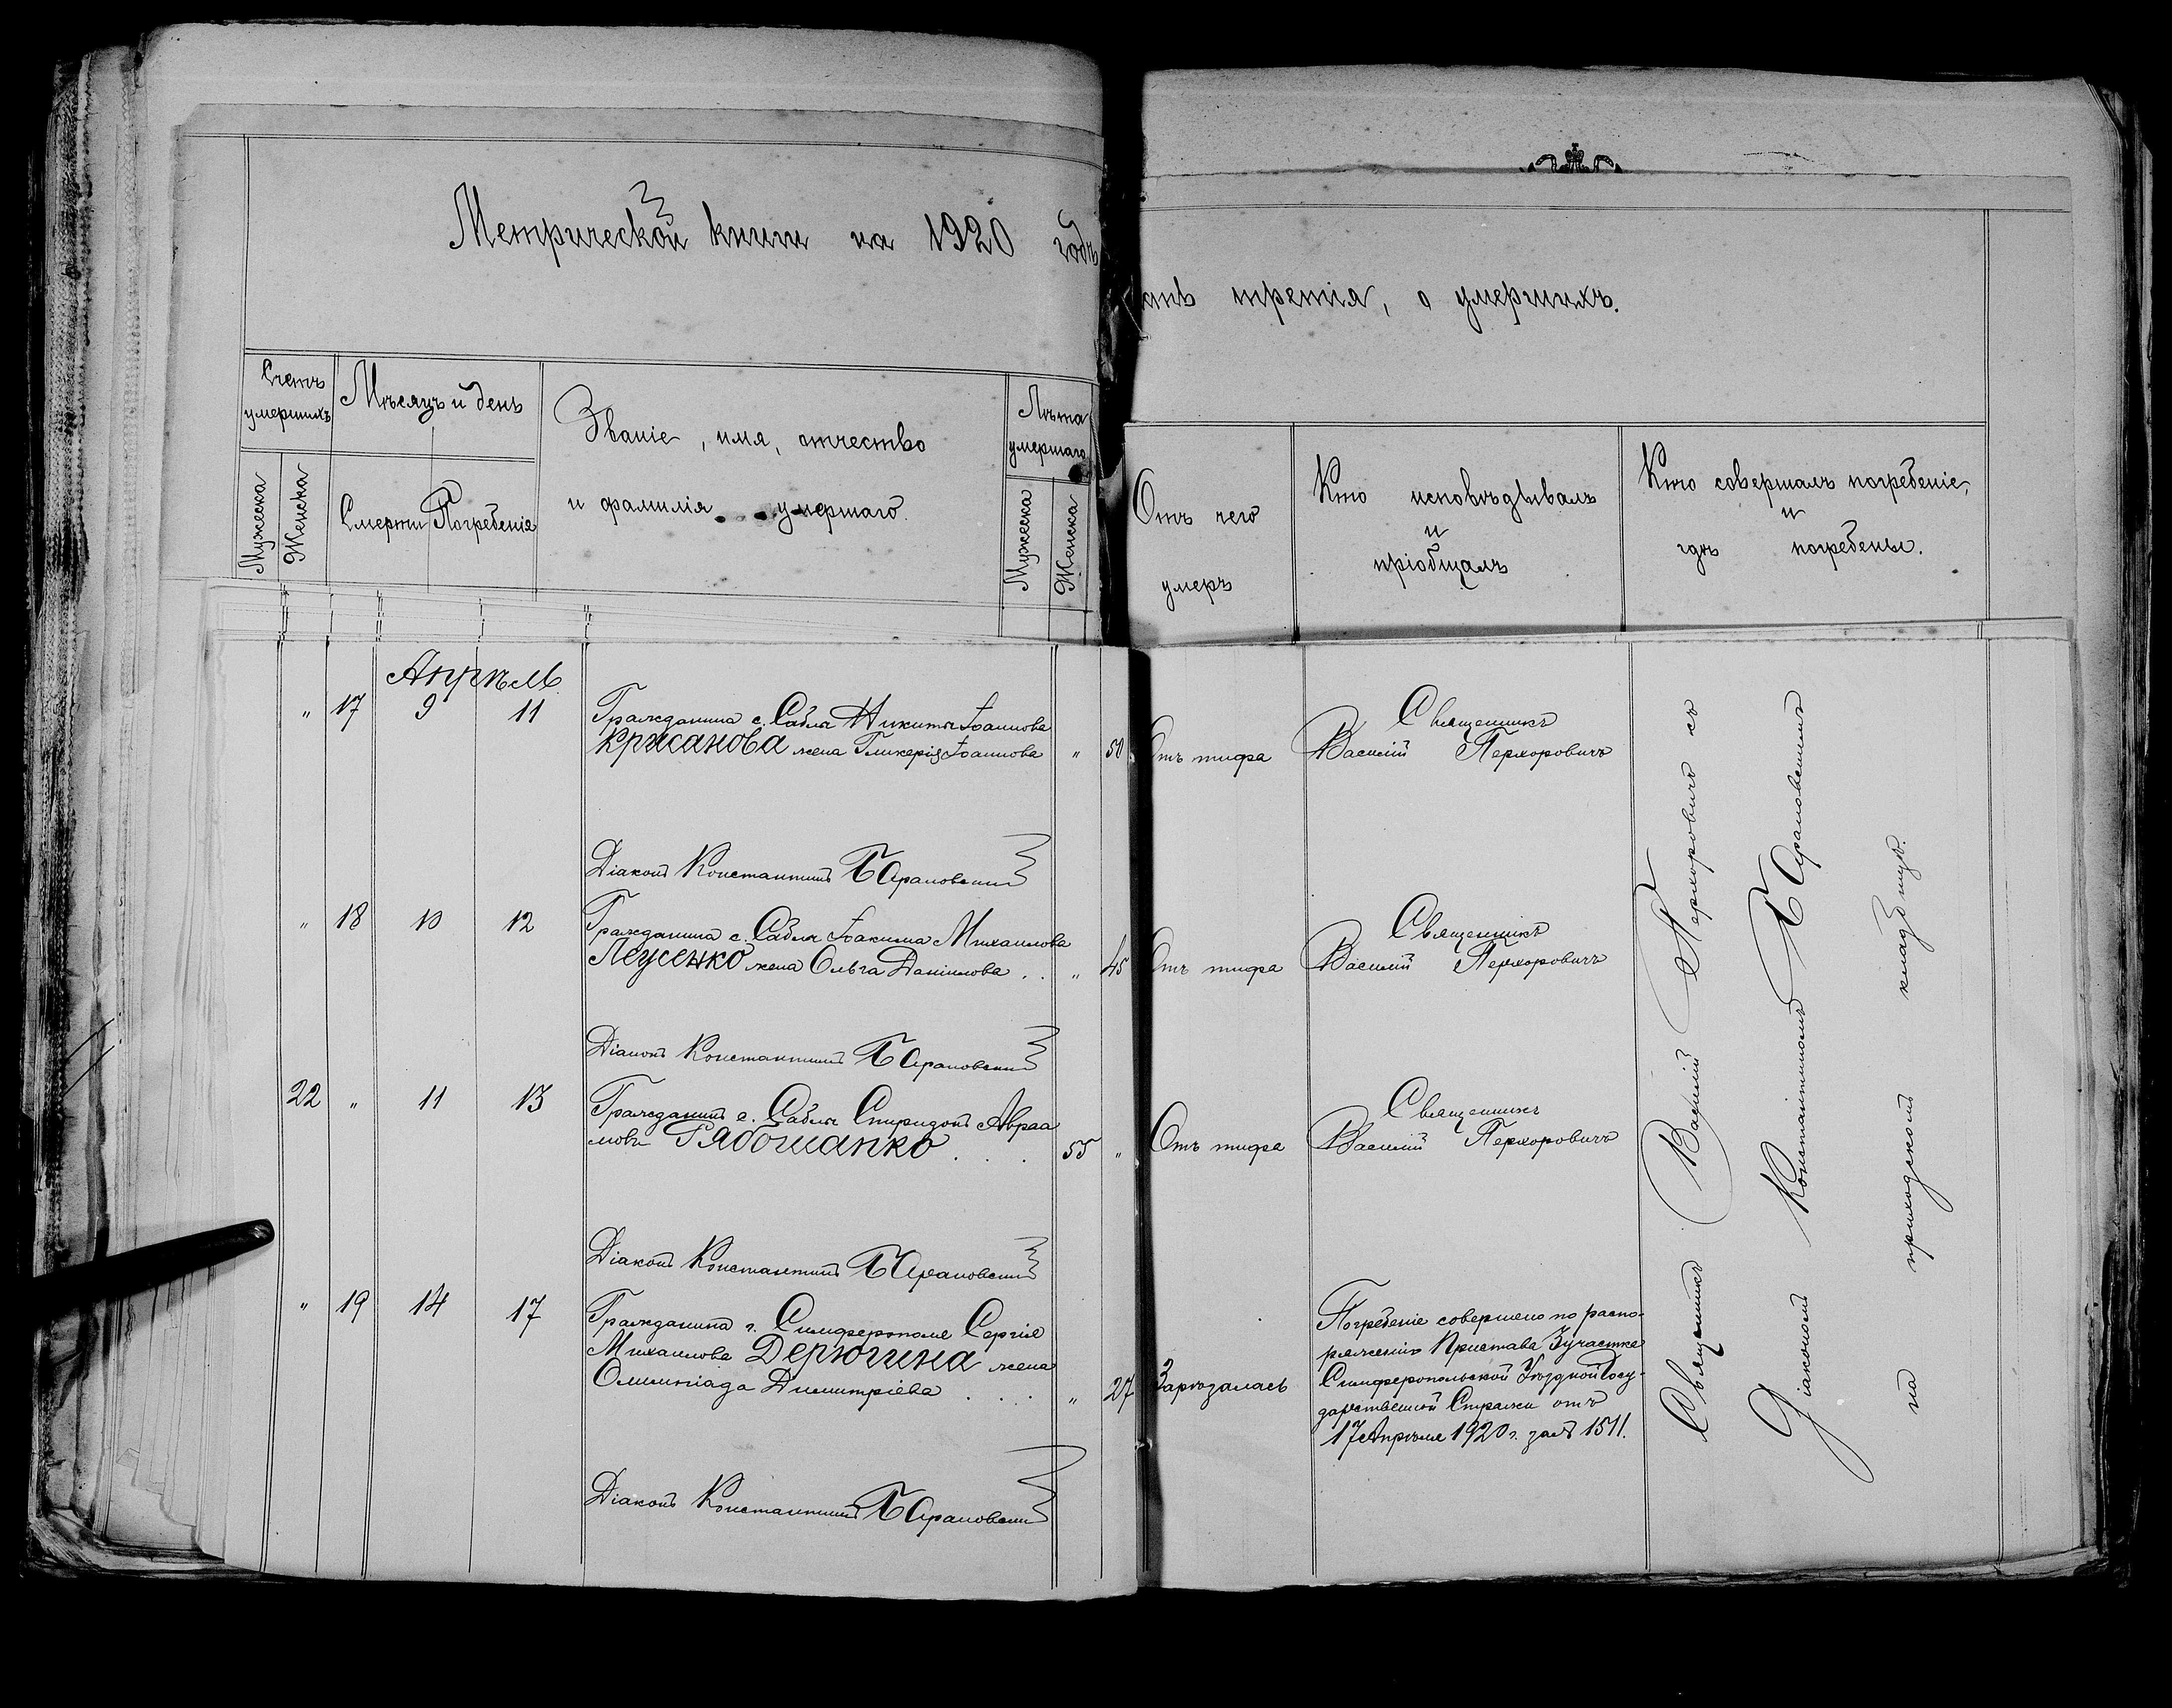 Метрической книги на 1920 годъ
третія, о умершихъ.
Счетъ
умершихъ
Мѣсяцъ и день
Мужеска
Женска
Смерти
Погребенія
Званіе, имя, отчество
и фамилія умершаго.
Лѣта
умершаго
Мужеска
Женска
Отъ чего
умеръ
Кто исповѣдывалъ
и
пріобщалъ
Кто совершалъ погребеніе,
и
гдѣ погребены.
Апрѣль
" 17 9 11
Гражданина с. Сабли Никиты Іоаннова
Крисанова жена Гликерія Іоаннова " 50
Отъ тифа
Священникъ
Василій Перхоровичъ
Діаконъ Константинъ Барановскій
" 18 10 12
Гражданина с. Сабли Іоакима Михаилова
Леусенко жена Ольга Даніилова . . " 45
Отъ тифа
Священникъ
Василій Перхоровичъ
Діаконъ Константинъ Барановскій
22 " 11 13
Гражданинъ с. Сабли Спиридонъ Авраа
мовъ Рябошапко . . . 55 "
Отъ тифа
Священникъ
Василій Перхоровичъ
Діаконъ Константинъ Барановскій
" 19 14 17
Гражданина г. Симферополя Сергія
Михаилова Дерюгина жена
Олимпіада Димитріева . . . " 27
Зарѣзалась
Погребеніе совершено по распо-
ряженію Пристава 3 участка
Симферопольской Уѣздной Госу-
дарственной Стражи отъ
17 Апрѣля 1920 г. за № 1511.
Діаконъ Константинъ Барановскій
Священникъ Василій Перхоровичъ съ
Діакономъ Константиномъ Барановскимъ
на приходскомъ кладбищѣ.